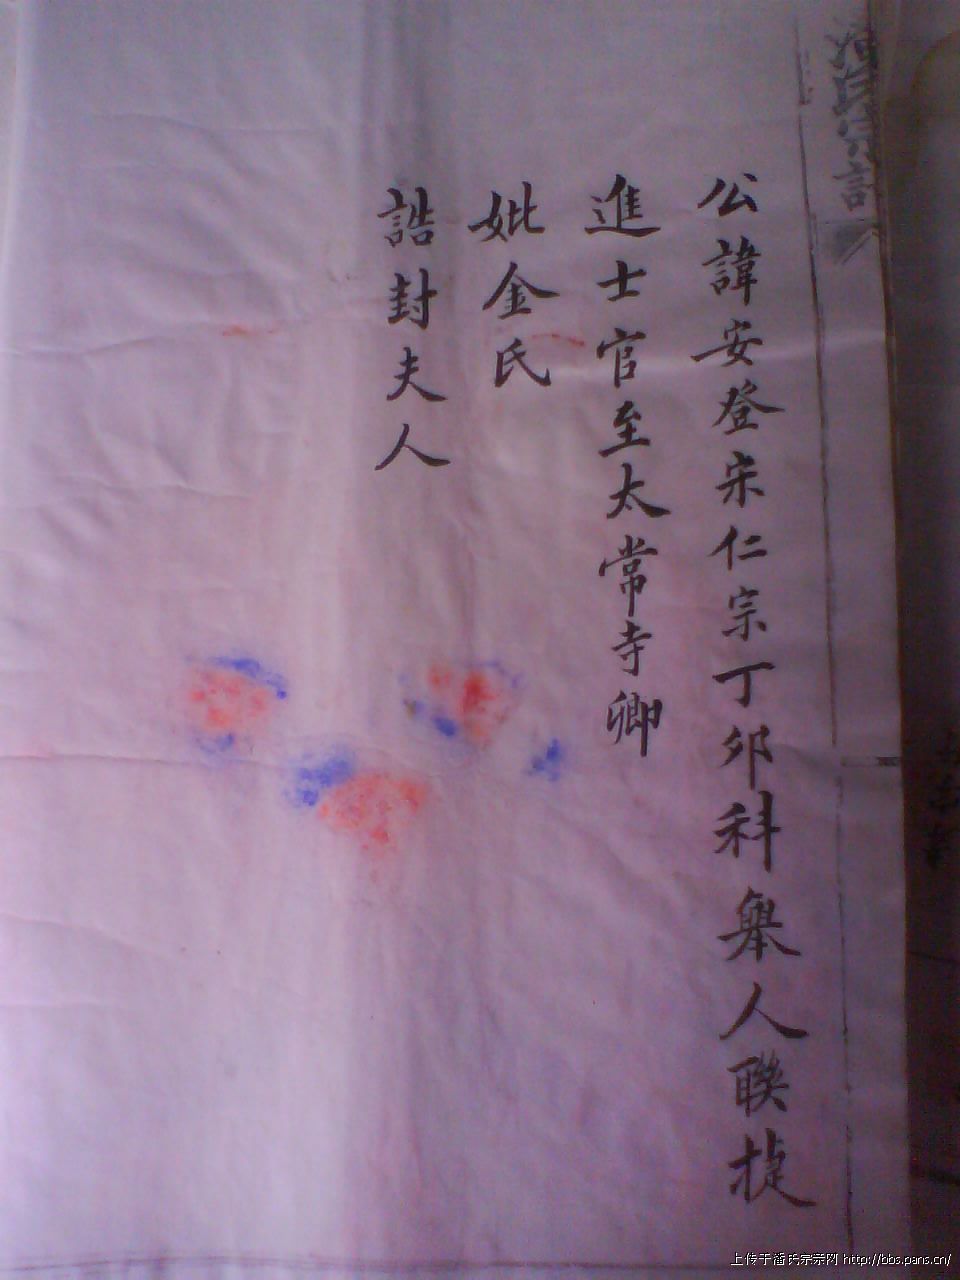 潘氏宗譜
公諱安登宋仁宗丁卯科舉人聯捷
進士官至太常寺卿
妣金氏
誥封夫人
上传于潘氏宗亲网 http://bbs.pans.cn/